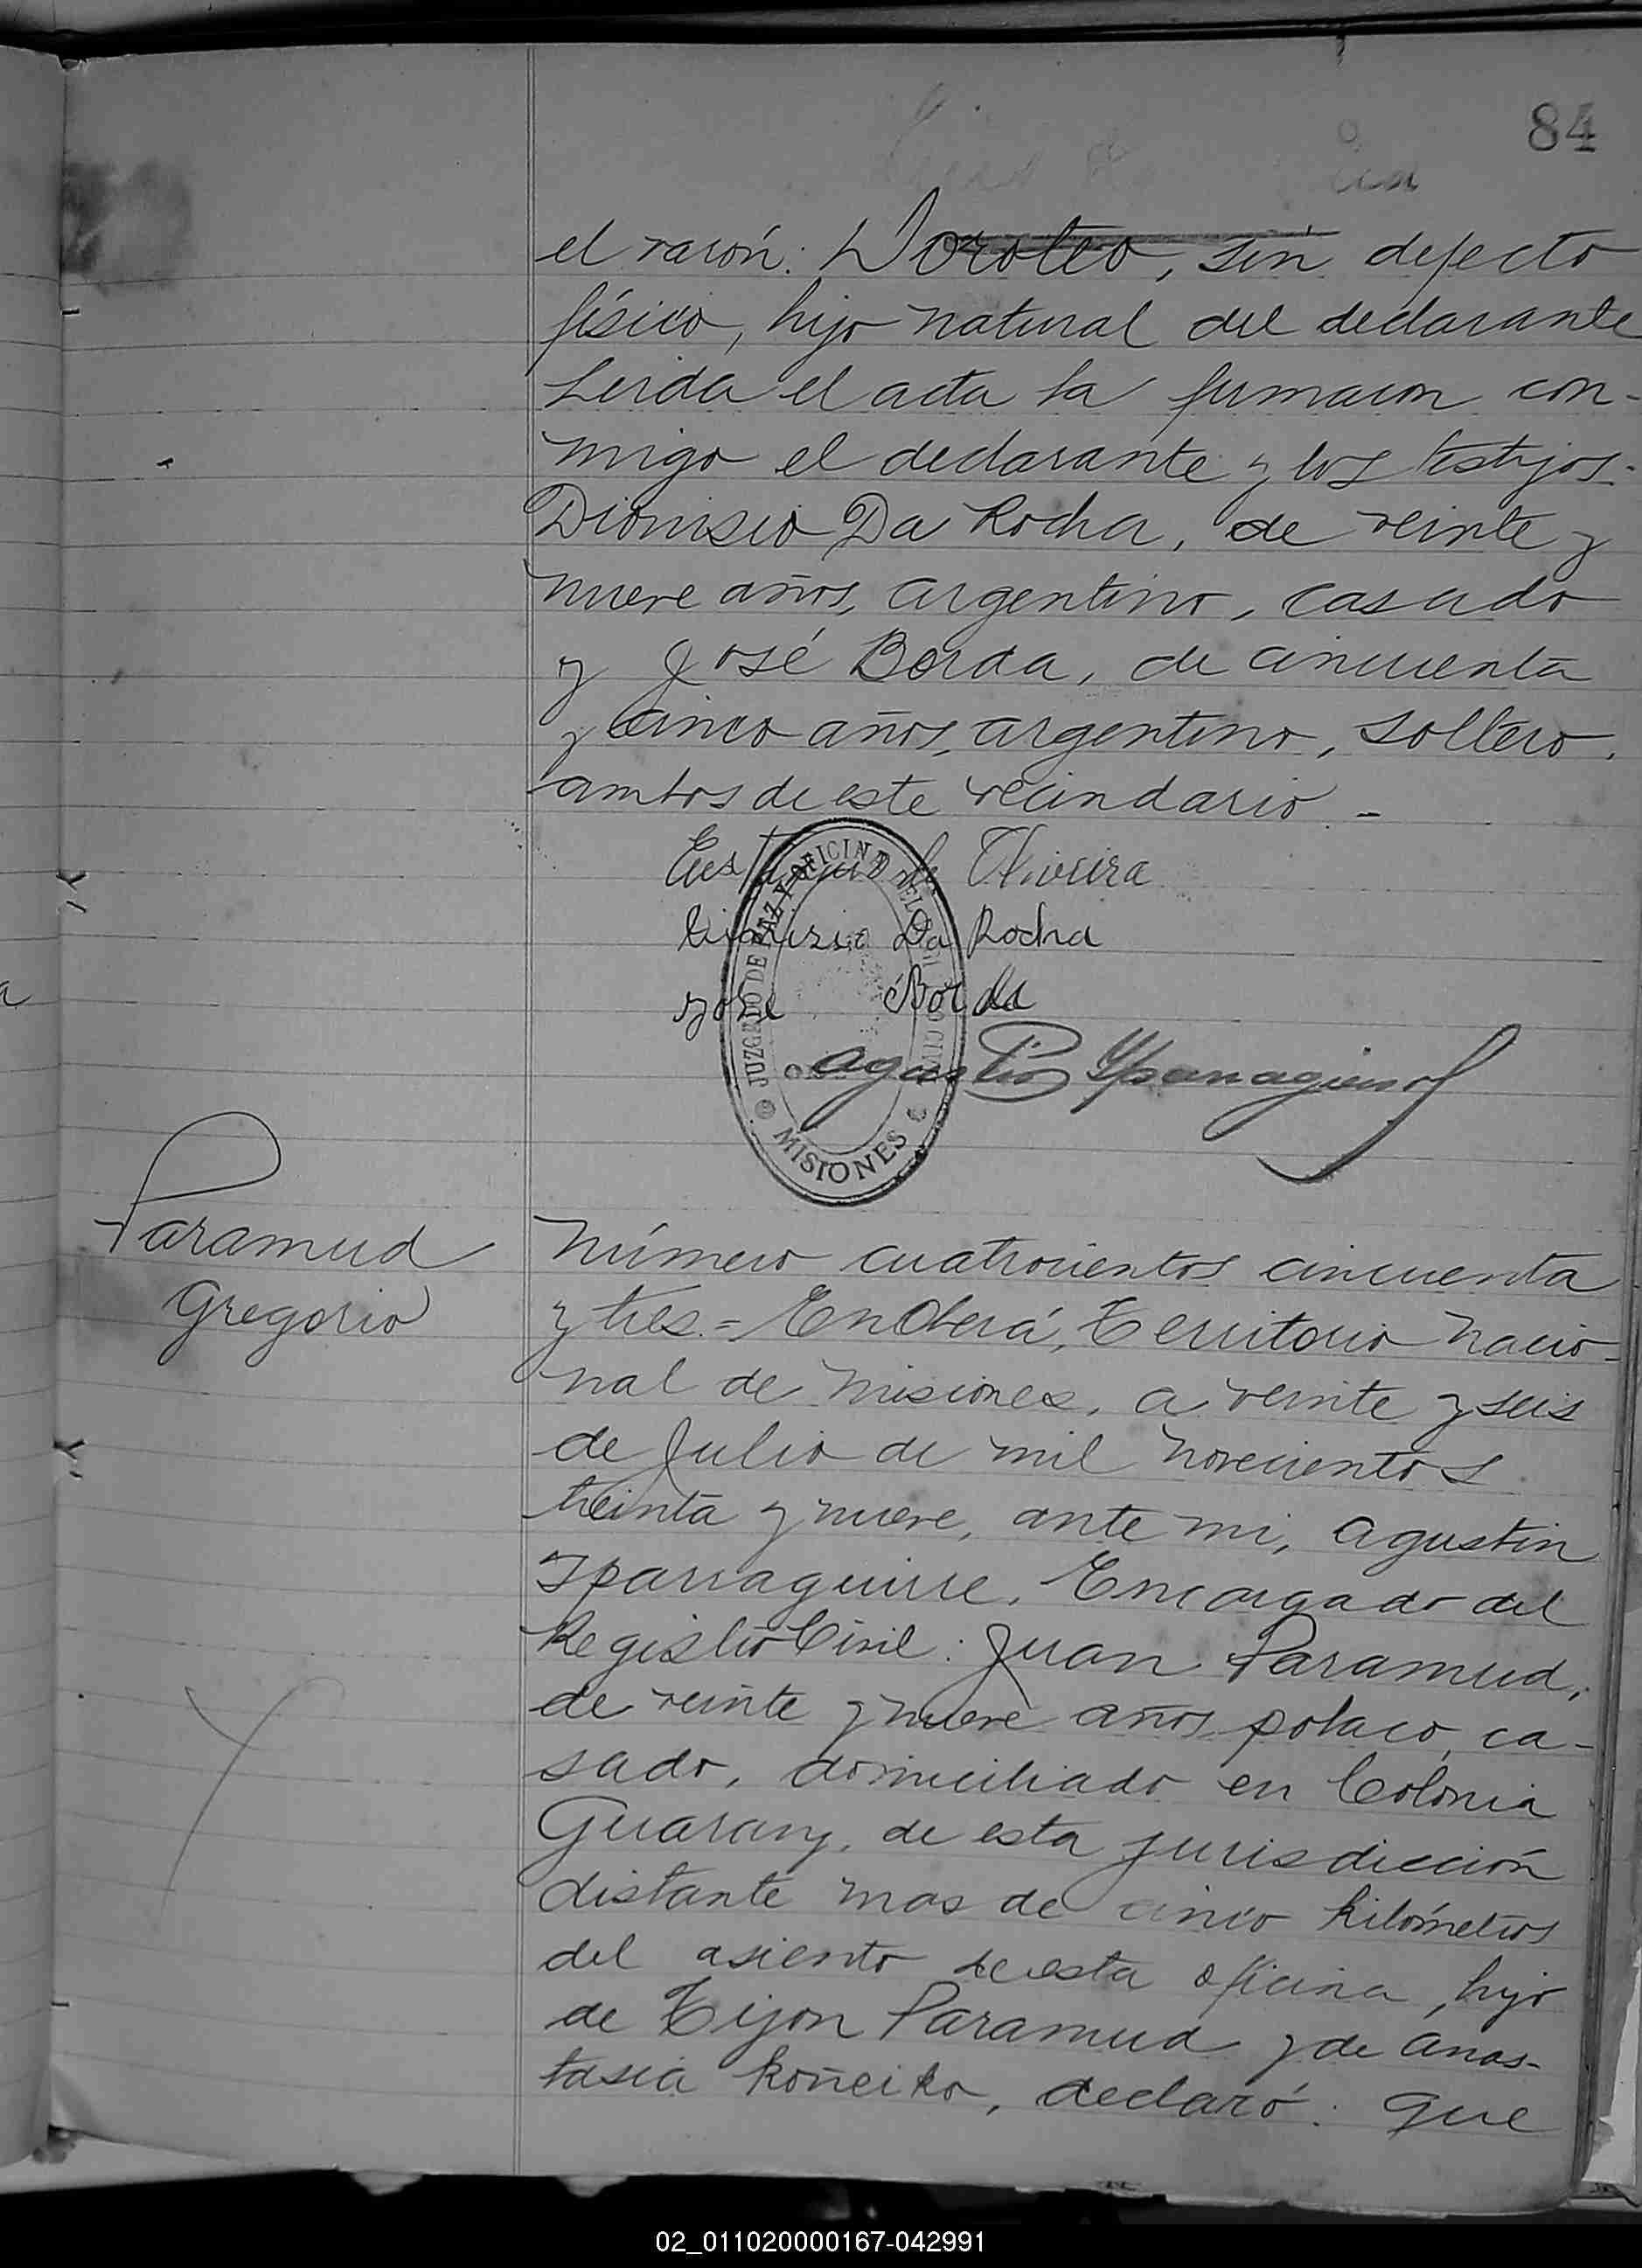 84
el varón: Doroteo, sin defecto
físico, hijo natural del declarante
Leida el acta la firmaron con-
migo el declarante y los testigos:
Dionisio Da Rocha, de veinte y
nueve años, argentino, casado
y José Borda, de cincuenta
y cinco años, argentino, soltero,
ambos de este vecindario. -
de Oliveira
Dionisio Da Rocha
Jose Borda
Agustin Yparraguirre
JUZGADO DE PAZ Y OFICINA DEL REGISTRO CIVIL
MISIONES
Paramud
Gregorio
Número cuatrocientos cincuenta
y tres = En Oberá, Territorio Nacio-
nal de Misiones, a veinte y seis
de Julio de mil novecientos
treinta y nueve, ante mi, Agustin
Yparraguirre, Encargado del
Registro Civil: Juan Paramud,
de veinte y nueve años, polaco, ca-
sado, domiciliado en Colonia
Guarany, de esta jurisdicción
distante mas de cinco kilómetros
del asiento de esta oficina, hijo
de Tijon Paramud y de Anas-
tasia Koñeiko, declaró: Que
02_011020000167-042991